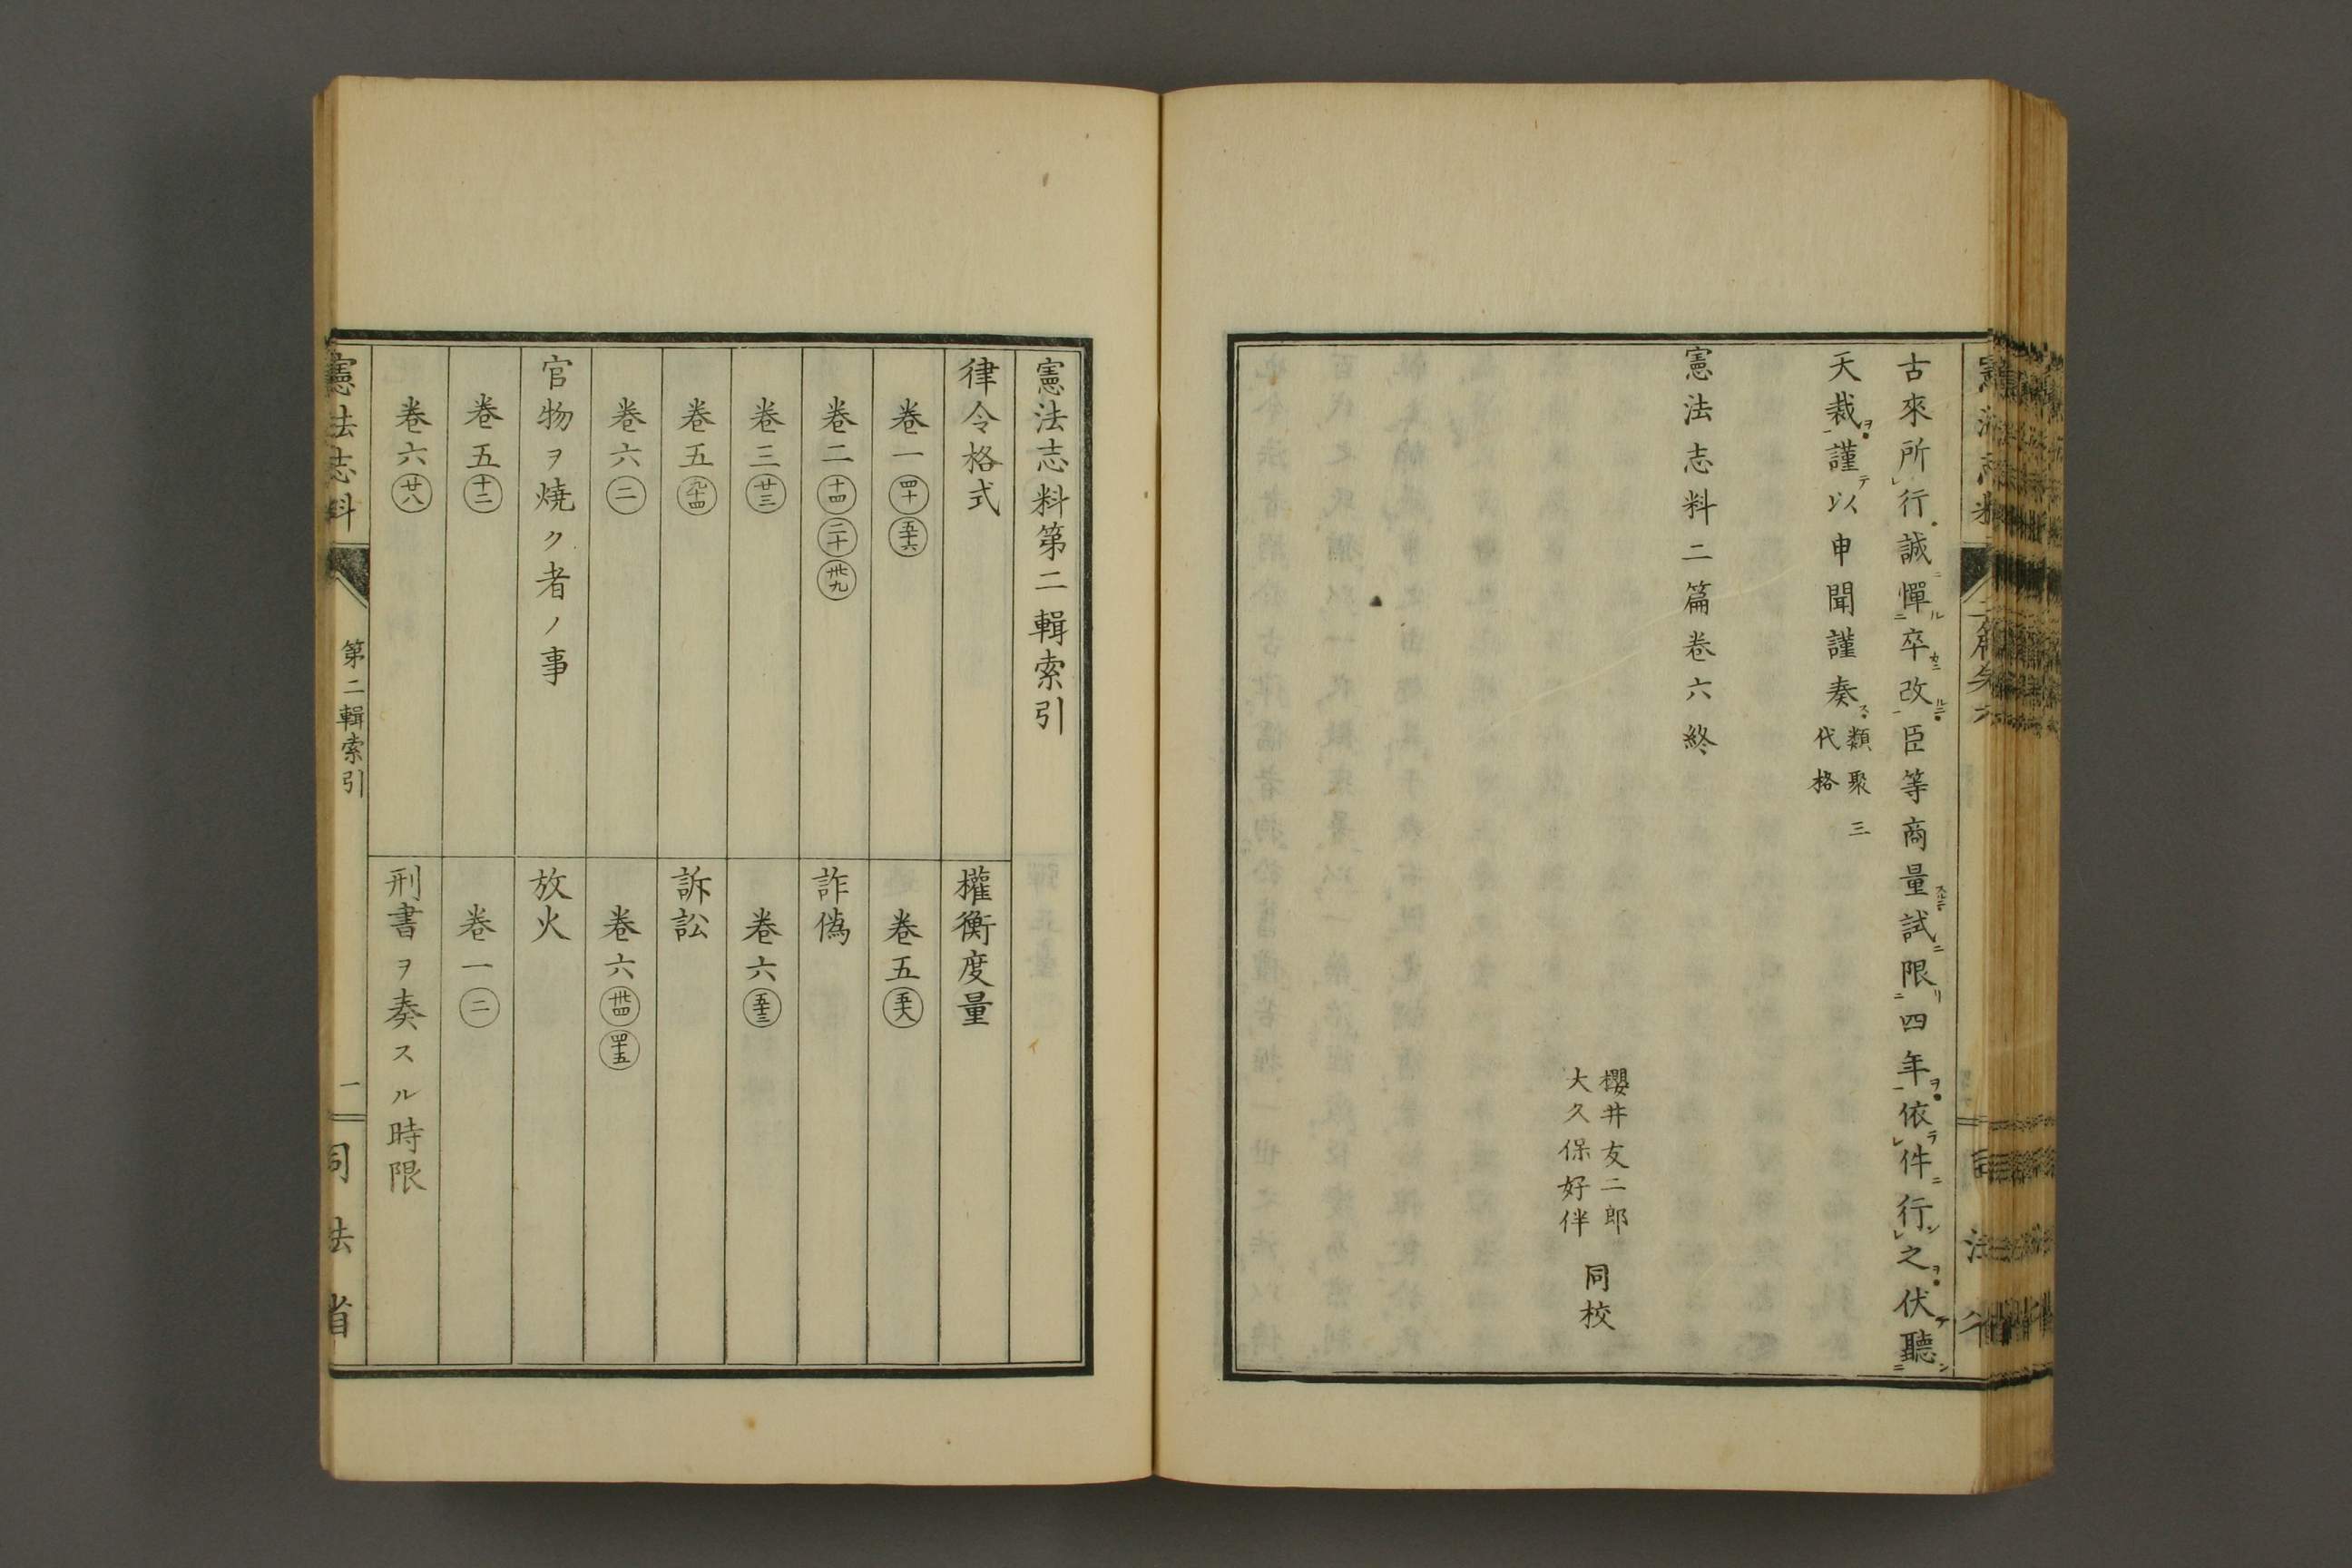 古來所行誠憚卒改臣等商量試限四年依件行之伏聽
天裁謹以申聞謹奏 類聚三代格
憲法志料二篇卷六終
櫻井友二郎
大久保好伴
同校
憲法志料第二輯索引
律令格式
卷一 四十 五十六
卷二 十四 二十 卅九
卷三 廿三
卷五 九十四
卷六 二
官物ヲ燒ク者ノ事
卷五 十二
卷六 廿八
權衡度量
卷五 五十六
詐僞
卷六 五十三
訴訟
卷六 卅四 四十五
放火
卷一 二
刑書ヲ奏スル時限
憲法志料
第二輯索引
一
司法省